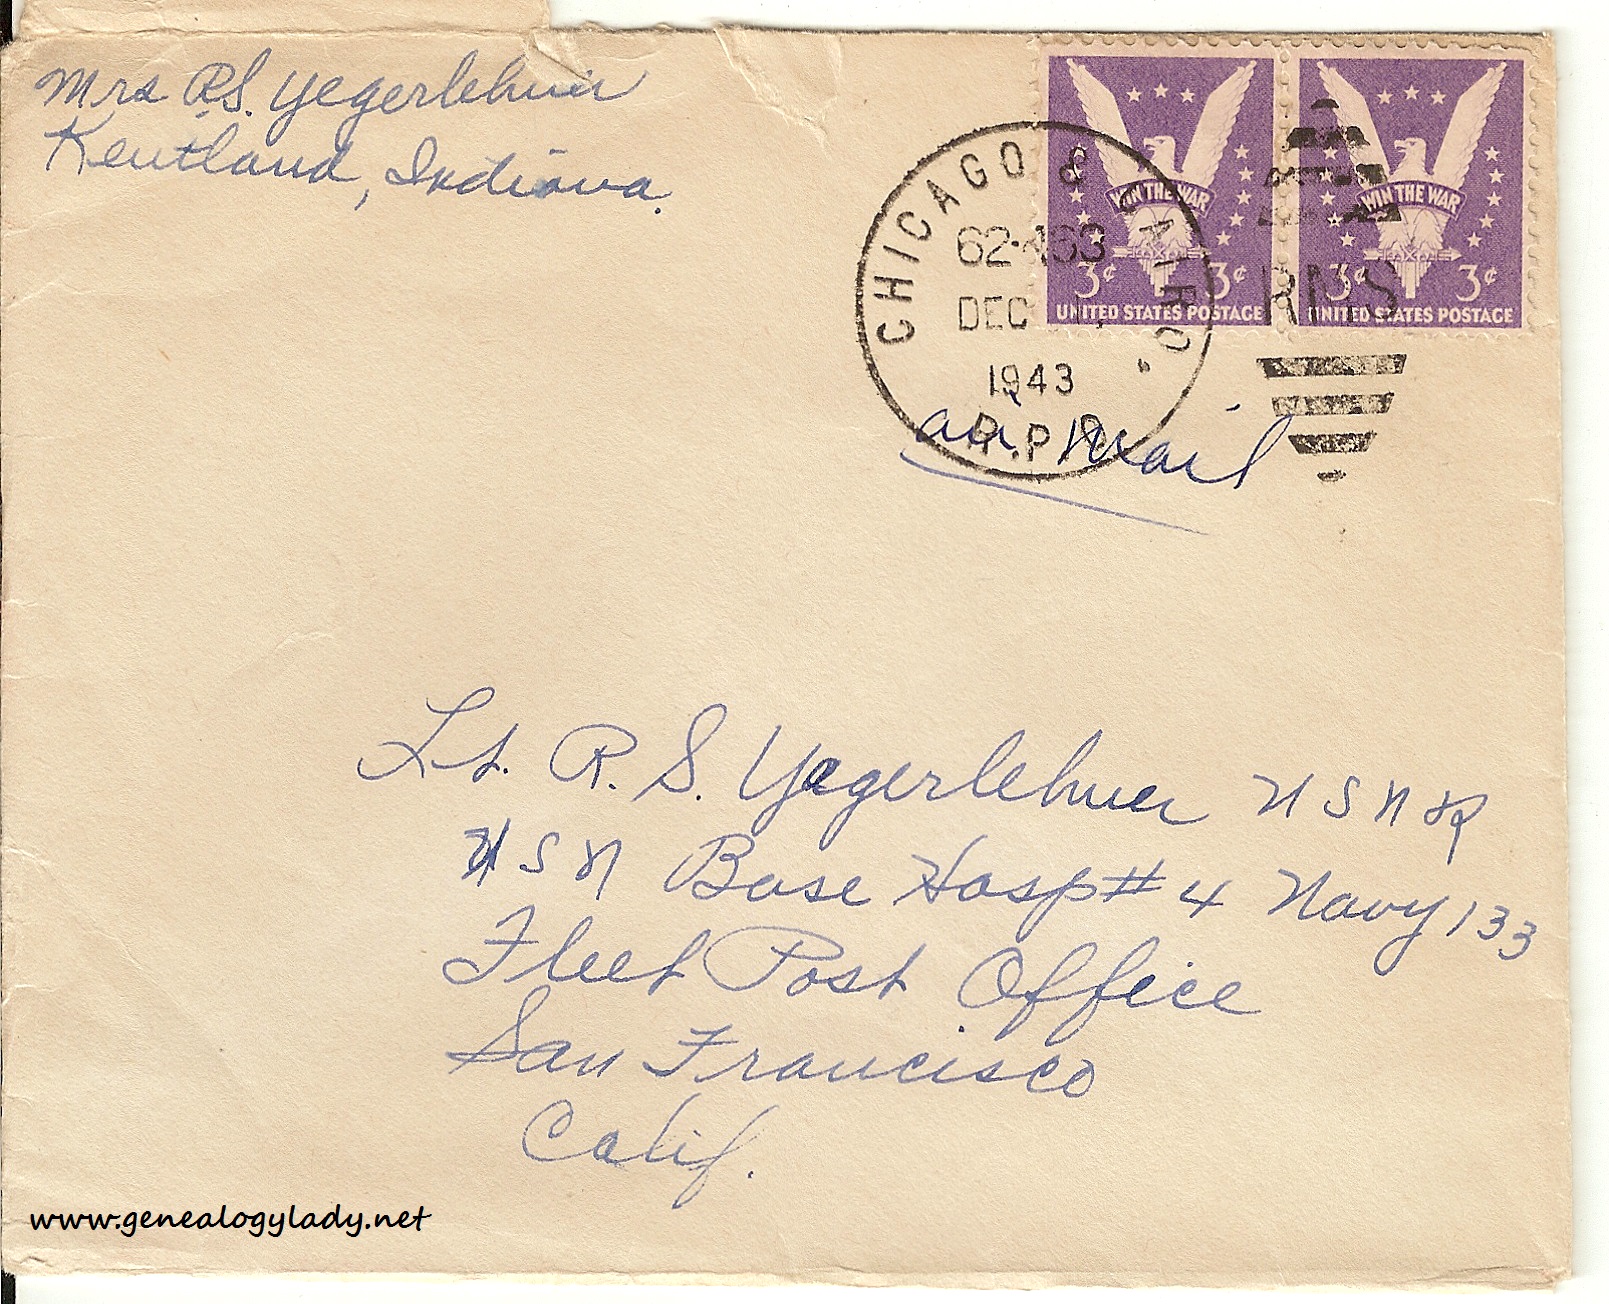 Mrs R.S. Yegerlehner
Kentland, Indiana.
WIN THE WAR
3¢ 3¢
UNITED STATES POSTAGE
WIN THE WAR
3¢ 3¢
UNITED STATES POSTAGE
CHICAGO & CAIRO.
DEC
1943
R.P.O.
RMS
air mail
Lt. R. S. Yegerlehner USNR
USN Base Hosp # 4 Navy 133
Fleet Post Office
San Francisco
Calif.
www.genealogylady.net